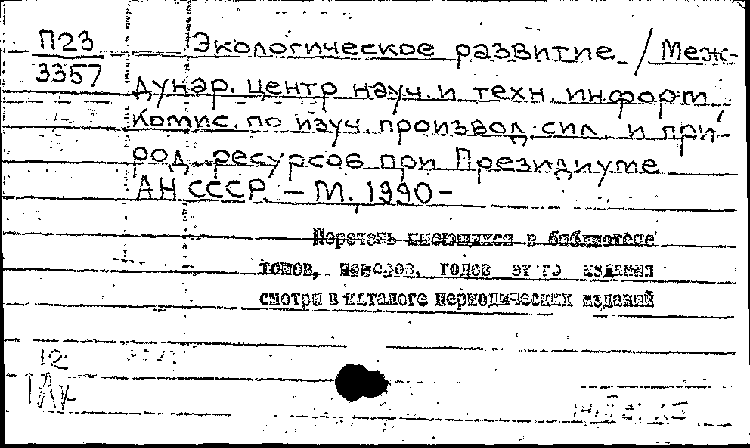 П23
3357
Экологическое развитие. / Меж-
дунар. центр науч. и техн. информ.,
Комис. по изуч. производ. сил и при-
род. ресурсов при Президиуме
АН СССР. – М., 1990 –
Перечень имеющихся в библиотеке
томов, номеров, годов этого издания
смотри в каталоге периодических изданий
12